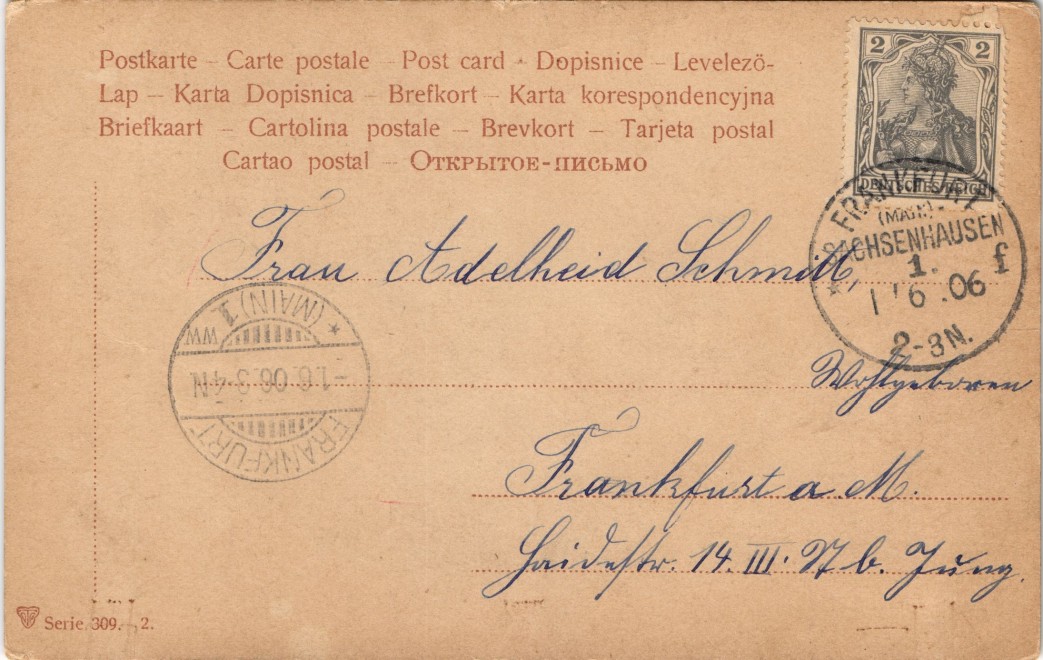 Postkarte – Carte postale – Post card · Dopisnice – Levelező-
Lap – Karta Dopisnica – Brefkort – Karta korespondencyjna
Briefkaart – Cartolina postale – Brevkort – Tarjeta postal
Cartao postal – Открытое-письмо
2 2
DEUTSCHES REICH
FRANKFURT
(MAIN)-
SACHSENHAUSEN
1. f
1 6 .06
2-3N.
Frau Adelheid Schmitt,
Wohlgeboren
Frankfurt a. M.
Haidestr. 14. III. b. Jung.
FRANKFURT
-1.6.06.3-4N
★ (MAIN) 1
Serie. 309. – 2.